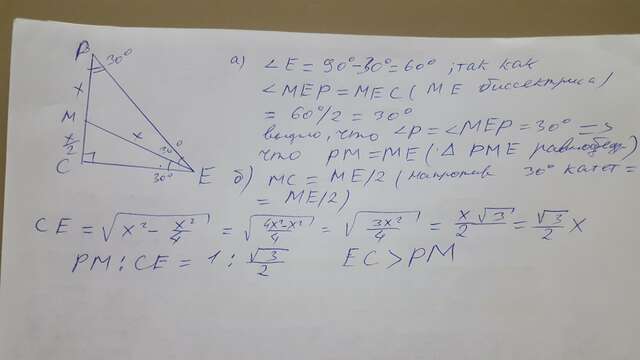 P 30°
x
M
x
x/2
C
30°
30°
E
а) ∠E = 90° - 30° = 60° ; так как
∠MEP = MEC ( ME биссектриса)
= 60°/2 = 30°
видно, что ∠P = ∠MEP = 30° =>
что PM = ME ( Δ PME равнобедр)
б) MC = ME/2 ( напротив 30° катет =
= ME/2)
CE = √(x² - x²/4) = √((4x² - x²)/4) = √(3x²/4) = x√3/2 = √3/2 x
PM : CE = 1 : √3/2 EC > PM